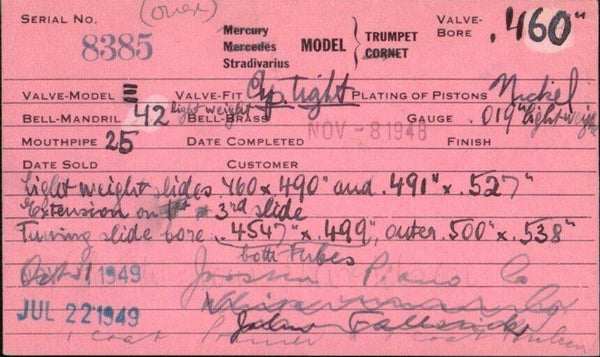 SERIAL NO. 8385 (over)
Mercury
Mercedes
Stradivarius
MODEL
TRUMPET
CORNET
VALVE-BORE .460"
VALVE-MODEL VALVE-FIT Cyr. Tight PLATING OF PISTONS Nickel
BELL-MANDRIL 42 light weight BELL-BRASS GAUGE .019" light weight
MOUTHPIPE 25 DATE COMPLETED NOV - 8 1948 FINISH
DATE SOLD CUSTOMER
Light weight slides 460 x 490" and .491" x .527"
Extension on 1st 3rd slide
Tuning slide bore .4547" x .499", outer .500" x .538"
both Tubes
Oct 1, 1949 Piano Co
JUL 22 1949
1 coat